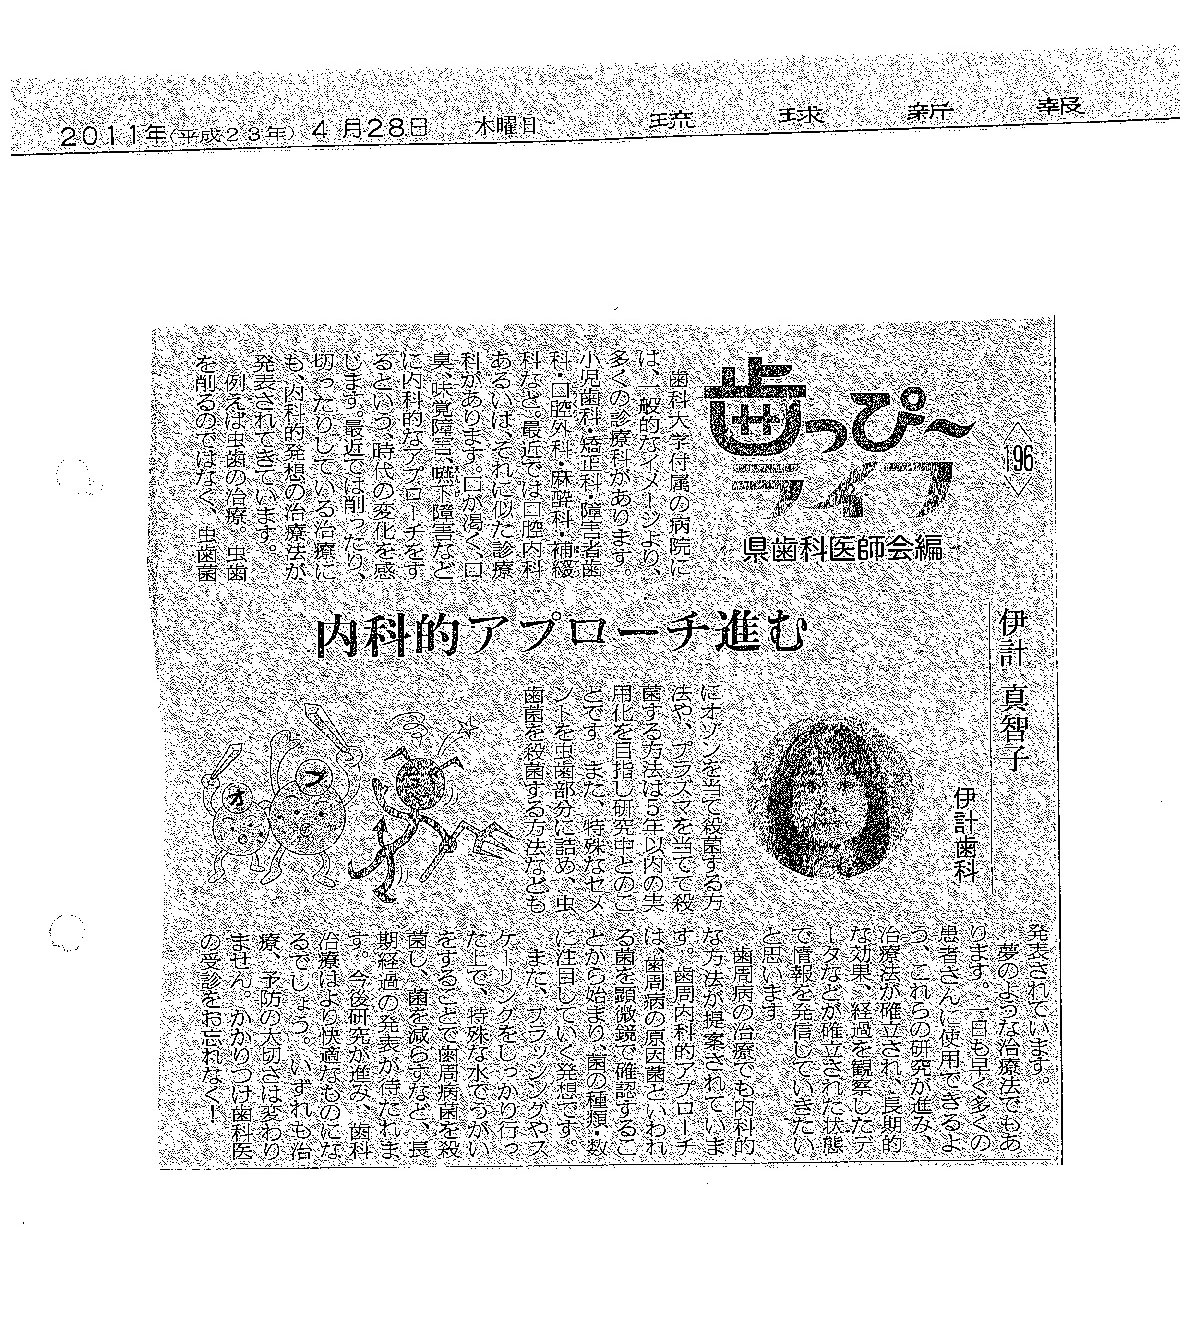 2011年(平成23年)4月28日 木曜日
琉球新報
歯っぴ〜
ライフ
〈196〉
県歯科医師会編
歯科大学付属の病院に
は、一般的なイメージより、
多くの診療科があります。
小児歯科・矯正科・障害者歯
科・口腔外科・麻酔科・補綴
科など。最近では口腔内科
あるいは、それに似た診療
科があります。口が渇く、口
臭、味覚障害、嚥下障害など
に内科的なアプローチをす
るという、時代の変化を感
じます。最近では削ったり、
切ったりしている治療に
も、内科的発想の治療法が
発表されてきています。
例えば虫歯の治療。虫歯
を削るのではなく、虫歯菌
内科的アプローチ進む
伊計 真智子
伊計歯科
にオゾンを当て殺菌する方
法や、プラズマを当てて殺
菌する方法は5年以内の実
用化を目指し研究中とのこ
とです。また、特殊なセメ
ントを虫歯部分に詰め、虫
歯菌を殺菌する方法なども
オ
プ
発表されています。
夢のような治療法でもあ
ります。一日も早く多くの
患者さんに使用できるよ
う、これらの研究が進み、
治療法が確立され、長期的
な効果、経過を観察したデ
ータなどが確立された状態
で情報を発信していきたい
と思います。
歯周病の治療でも内科的
な方法が提案されていま
す。歯周内科的アプローチ
は、歯周病の原因菌といわれ
る菌を顕微鏡で確認するこ
とから始まり、菌の種類・数
に注目していく発想です。
また、ブラッシングやス
ケーリングをしっかり行っ
た上で、特殊な水でうがい
をすることで歯周病菌を殺
菌し、菌を減らすなど、長
期経過の発表が待たれま
す。今後研究が進み、歯科
治療はより快適なものにな
るでしょう。いずれも治
療、予防の大切さは変わり
ません。かかりつけ歯科医
の受診をお忘れなく！